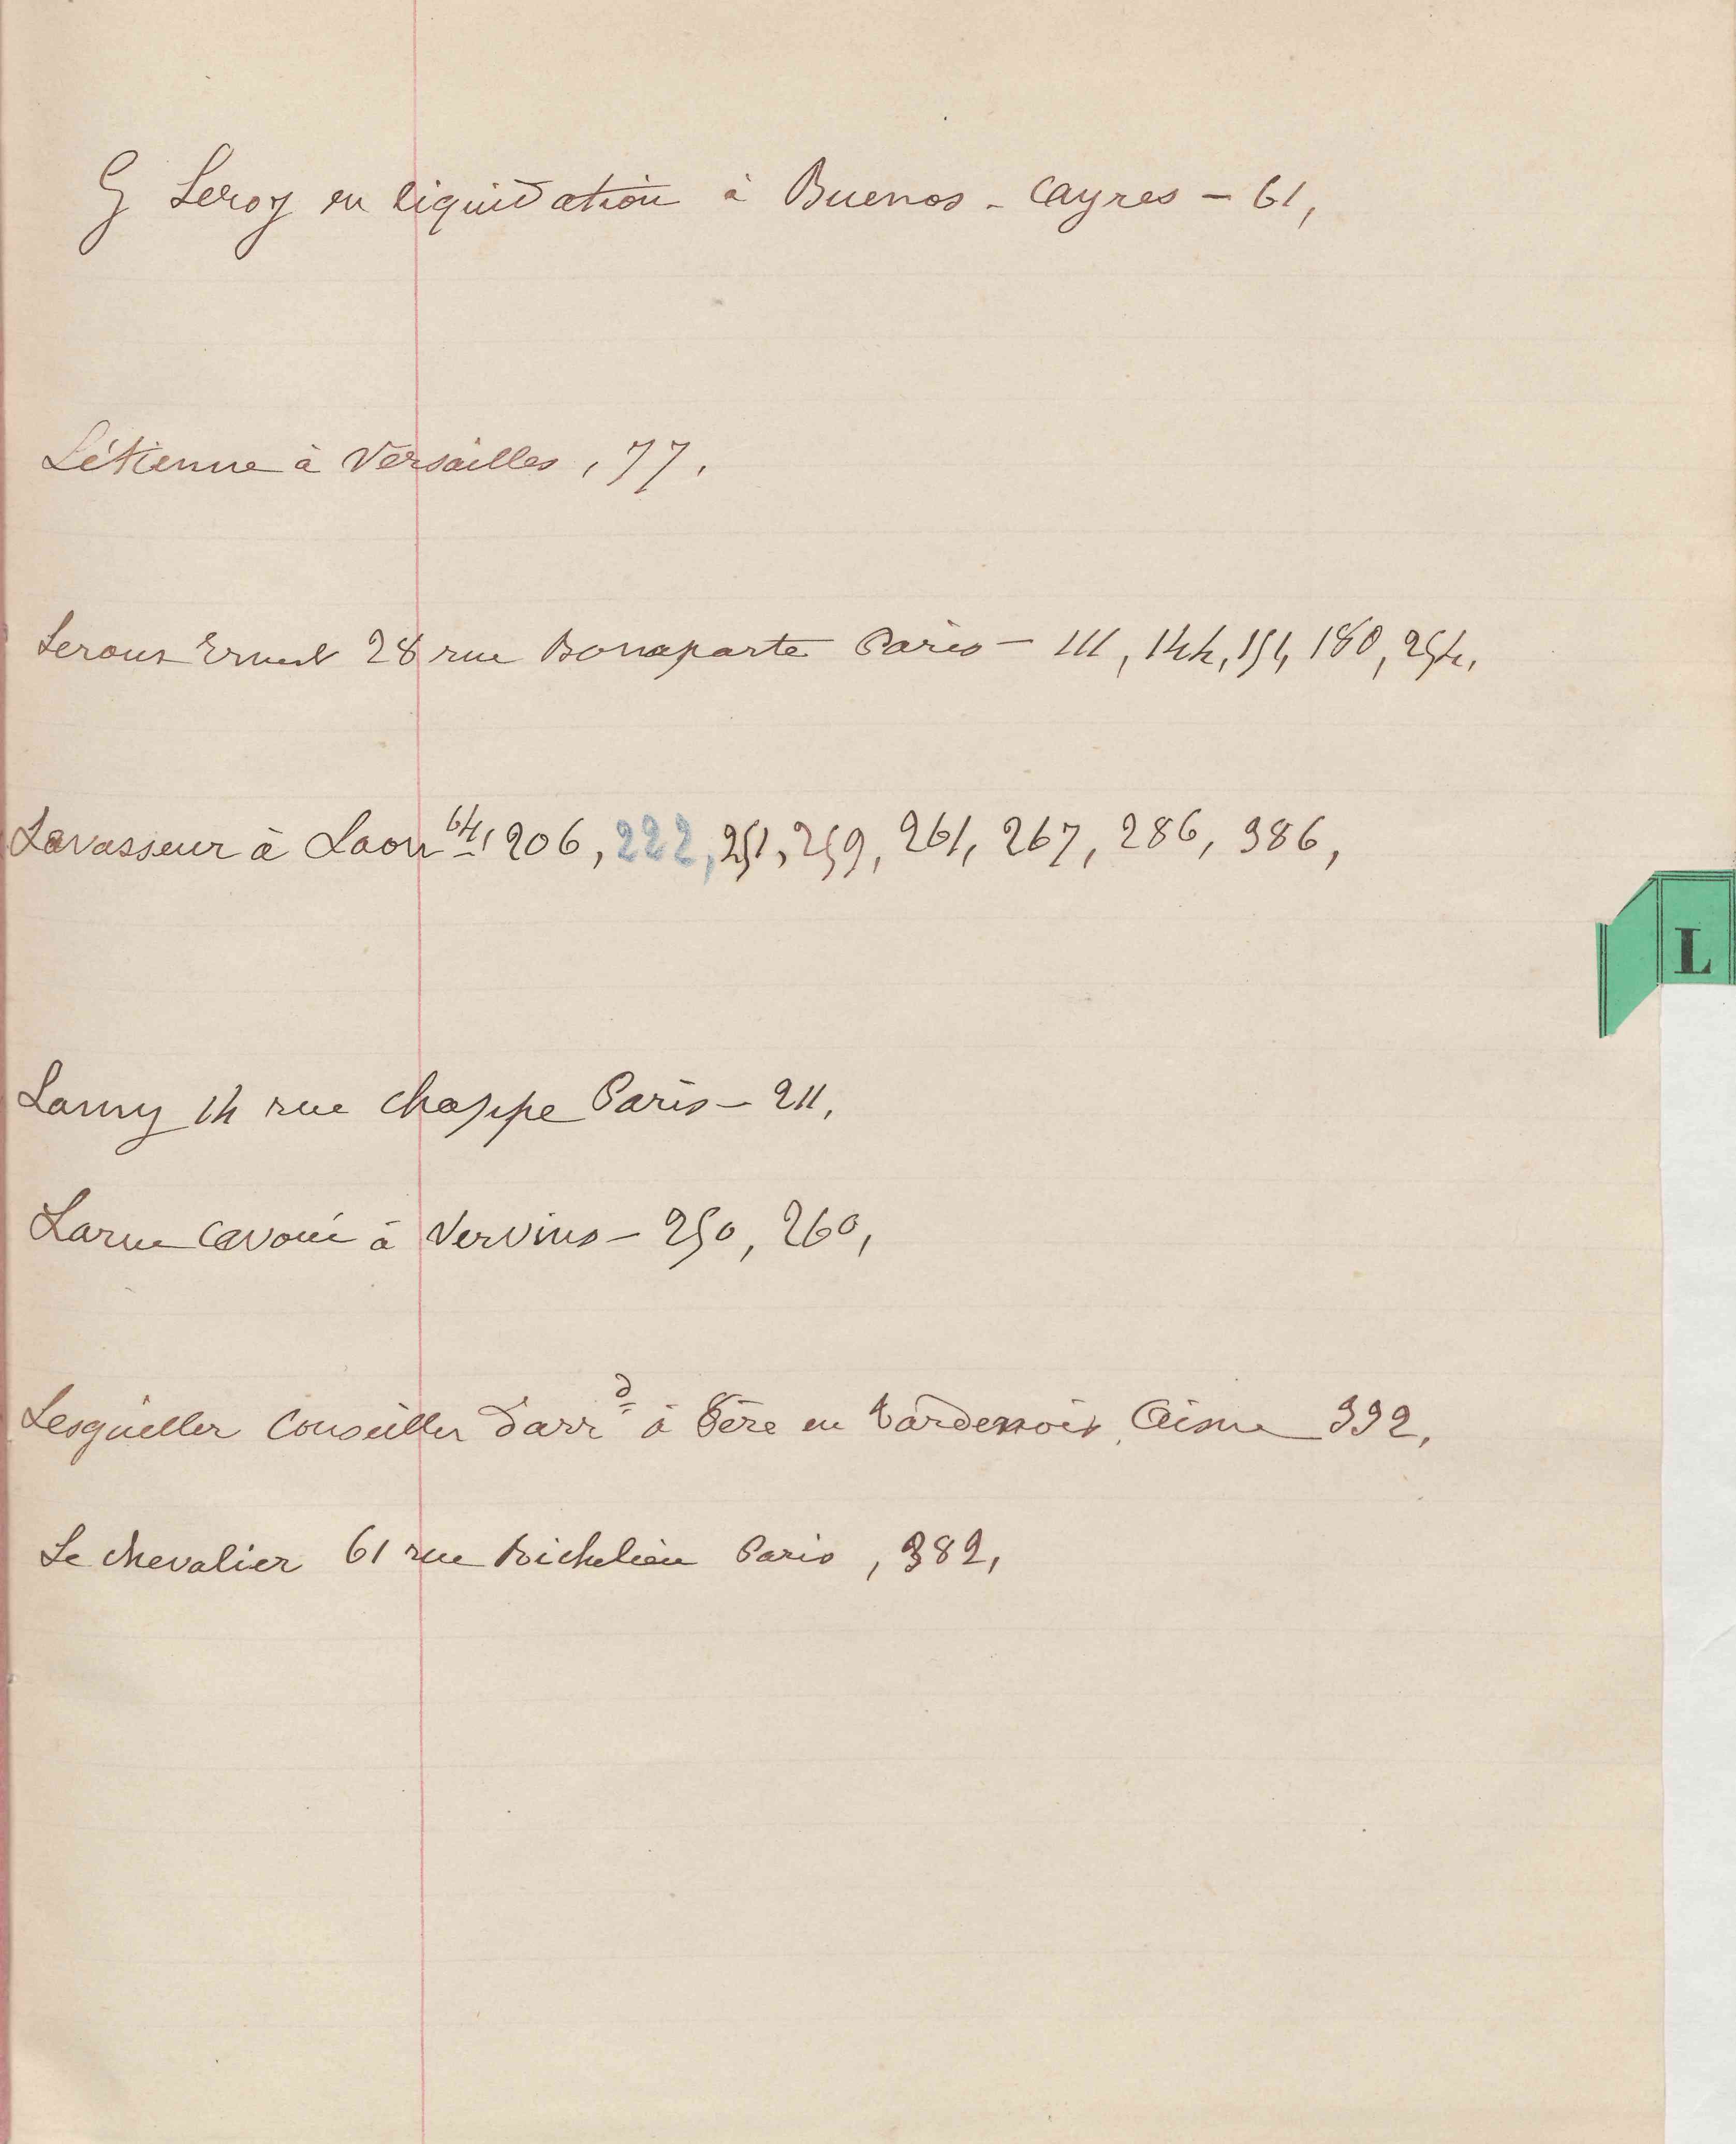 G Leroy en liquidation à Buenos-Ayres - 61,
Létienne à Versailles, 77.
Leroux Ernest 28 rue Bonaparte Paris - 111, 144, 151, 180, 254,
Lavasseur à Laon 64, 206, 222, 251, 259, 261, 267, 286, 386,
L
Lamy 14 rue Chappe Paris - 211,
Larue Avoué à Vervins - 250, 260,
Lesguiller Conseiller d'arrd à Fère en Tardenois Aisne 332,
Le Chevalier 61 rue Richelieu Paris, 382,